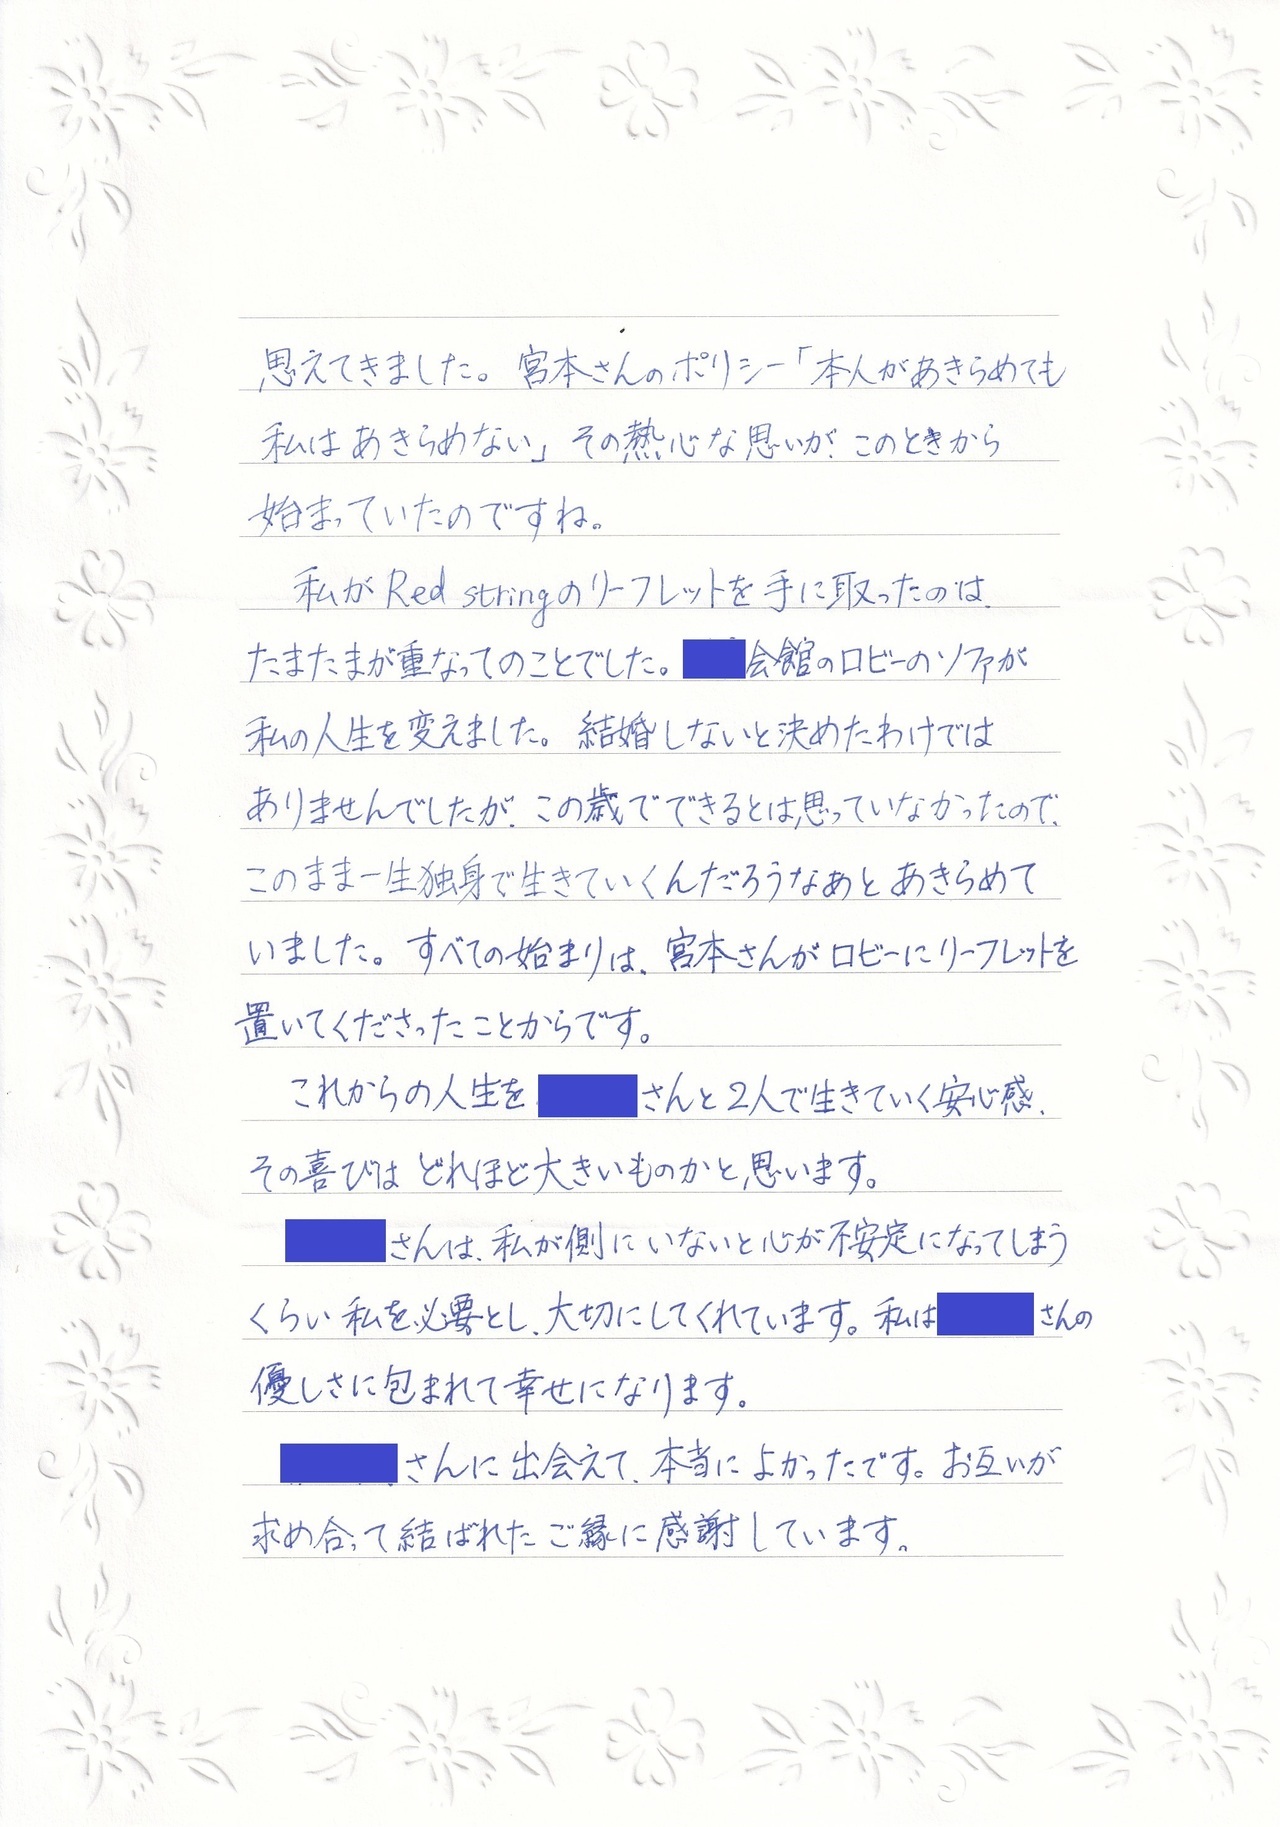 思えてきました。宮本さんのポリシー「本人があきらめても
私はあきらめない」その熱心な思いが、このときから
始まっていたのですね。
私がRed stringのリーフレットを手に取ったのは、
たまたまが重なってのことでした。会館のロビーのソファが
私の人生を変えました。結婚しないと決めたわけでは
ありませんでしたが、この歳でできるとは思っていなかったので、
このまま一生独身で生きていくんだろうなぁとあきらめて
いました。すべての始まりは、宮本さんがロビーにリーフレットを
置いてくださったことからです。
これからの人生をさんと2人で生きていく安心感、
その喜びはどれほど大きいものかと思います。
さんは、私が側にいないと心が不安定になってしまう
くらい私を必要とし、大切にしてくれています。私はさんの
優しさに包まれて幸せになります。
さんに出会えて、本当によかったです。お互いが
求め合って結ばれたご縁に感謝しています。